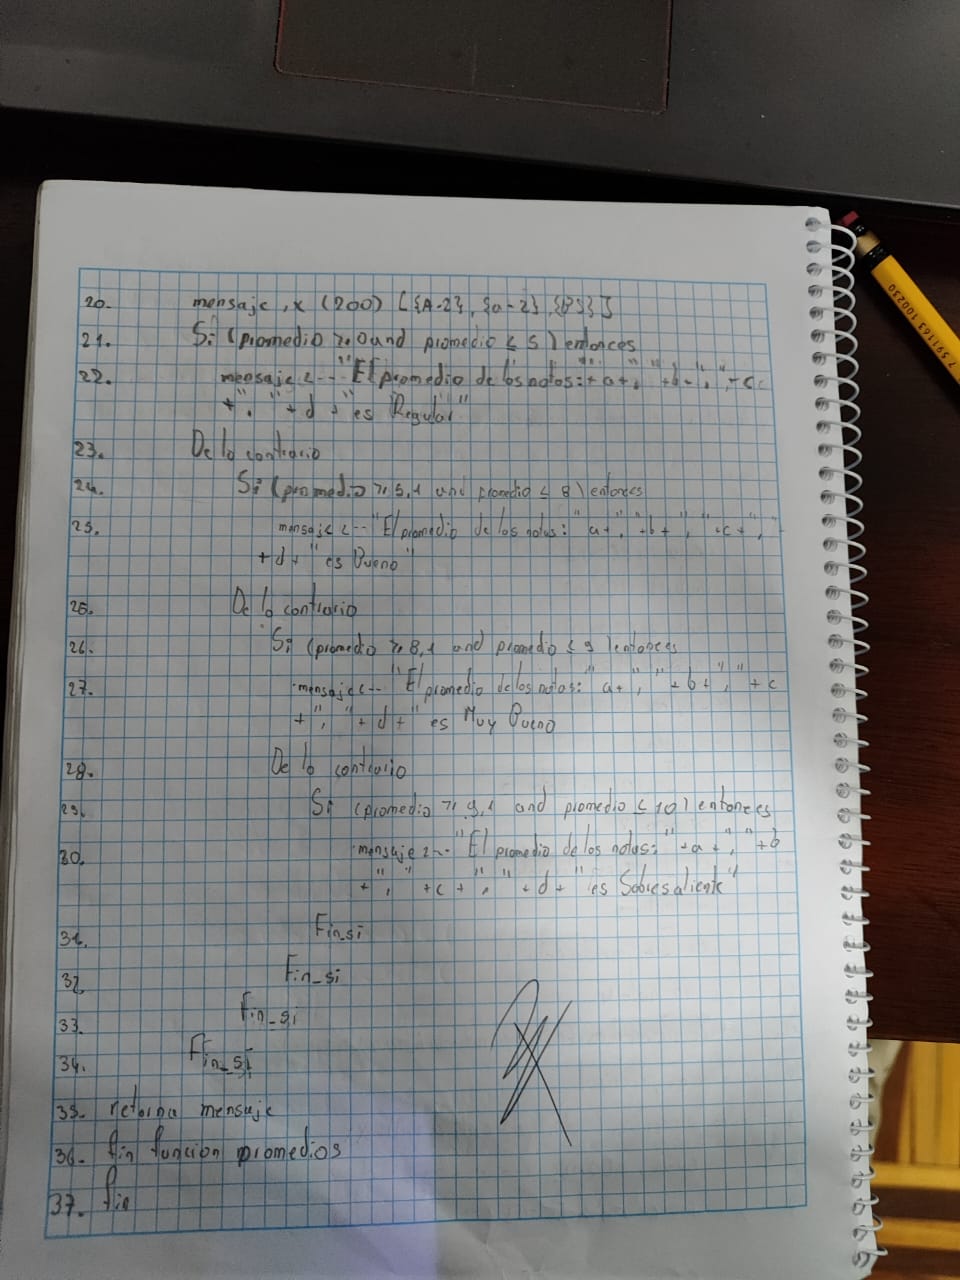 20. mensaje, x (200) [{A-Z}, {a-z}, {B}]
21. Si (promedio ≥ 0 and promedio ≤ 5) entonces
22. mensaje <-- "El promedio de las notas: + a + "," + b - "," + c
+ "," + d + "es Regular"
23. De lo contrario
24. Si (promedio ≥ 5,1 and promedio ≤ 8) entonces
25. mensaje <-- "El promedio de las notas:" a + "," + b + "," + c + ","
+ d + "es Bueno"
25. De lo contrario
26. Si (promedio ≥ 8,1 and promedio ≤ 9) entonces
27. mensaje <-- "El promedio de las notas:" a + "," + b + "," + c
+ "," + d + "es Muy Bueno
28. De lo contrario
29. Si (promedio ≥ 9,1 and promedio ≤ 10) entonces
30. mensaje <-- "El promedio de las notas:" + a + "," + b
+ "," + c + "," + d + "es Sobresaliente"
31. Fin_si
32. Fin_si
33. Fin_si
34. Fin_si
35. retorna mensaje
36. fin funcion promedios
37. fin
7 591163 100230